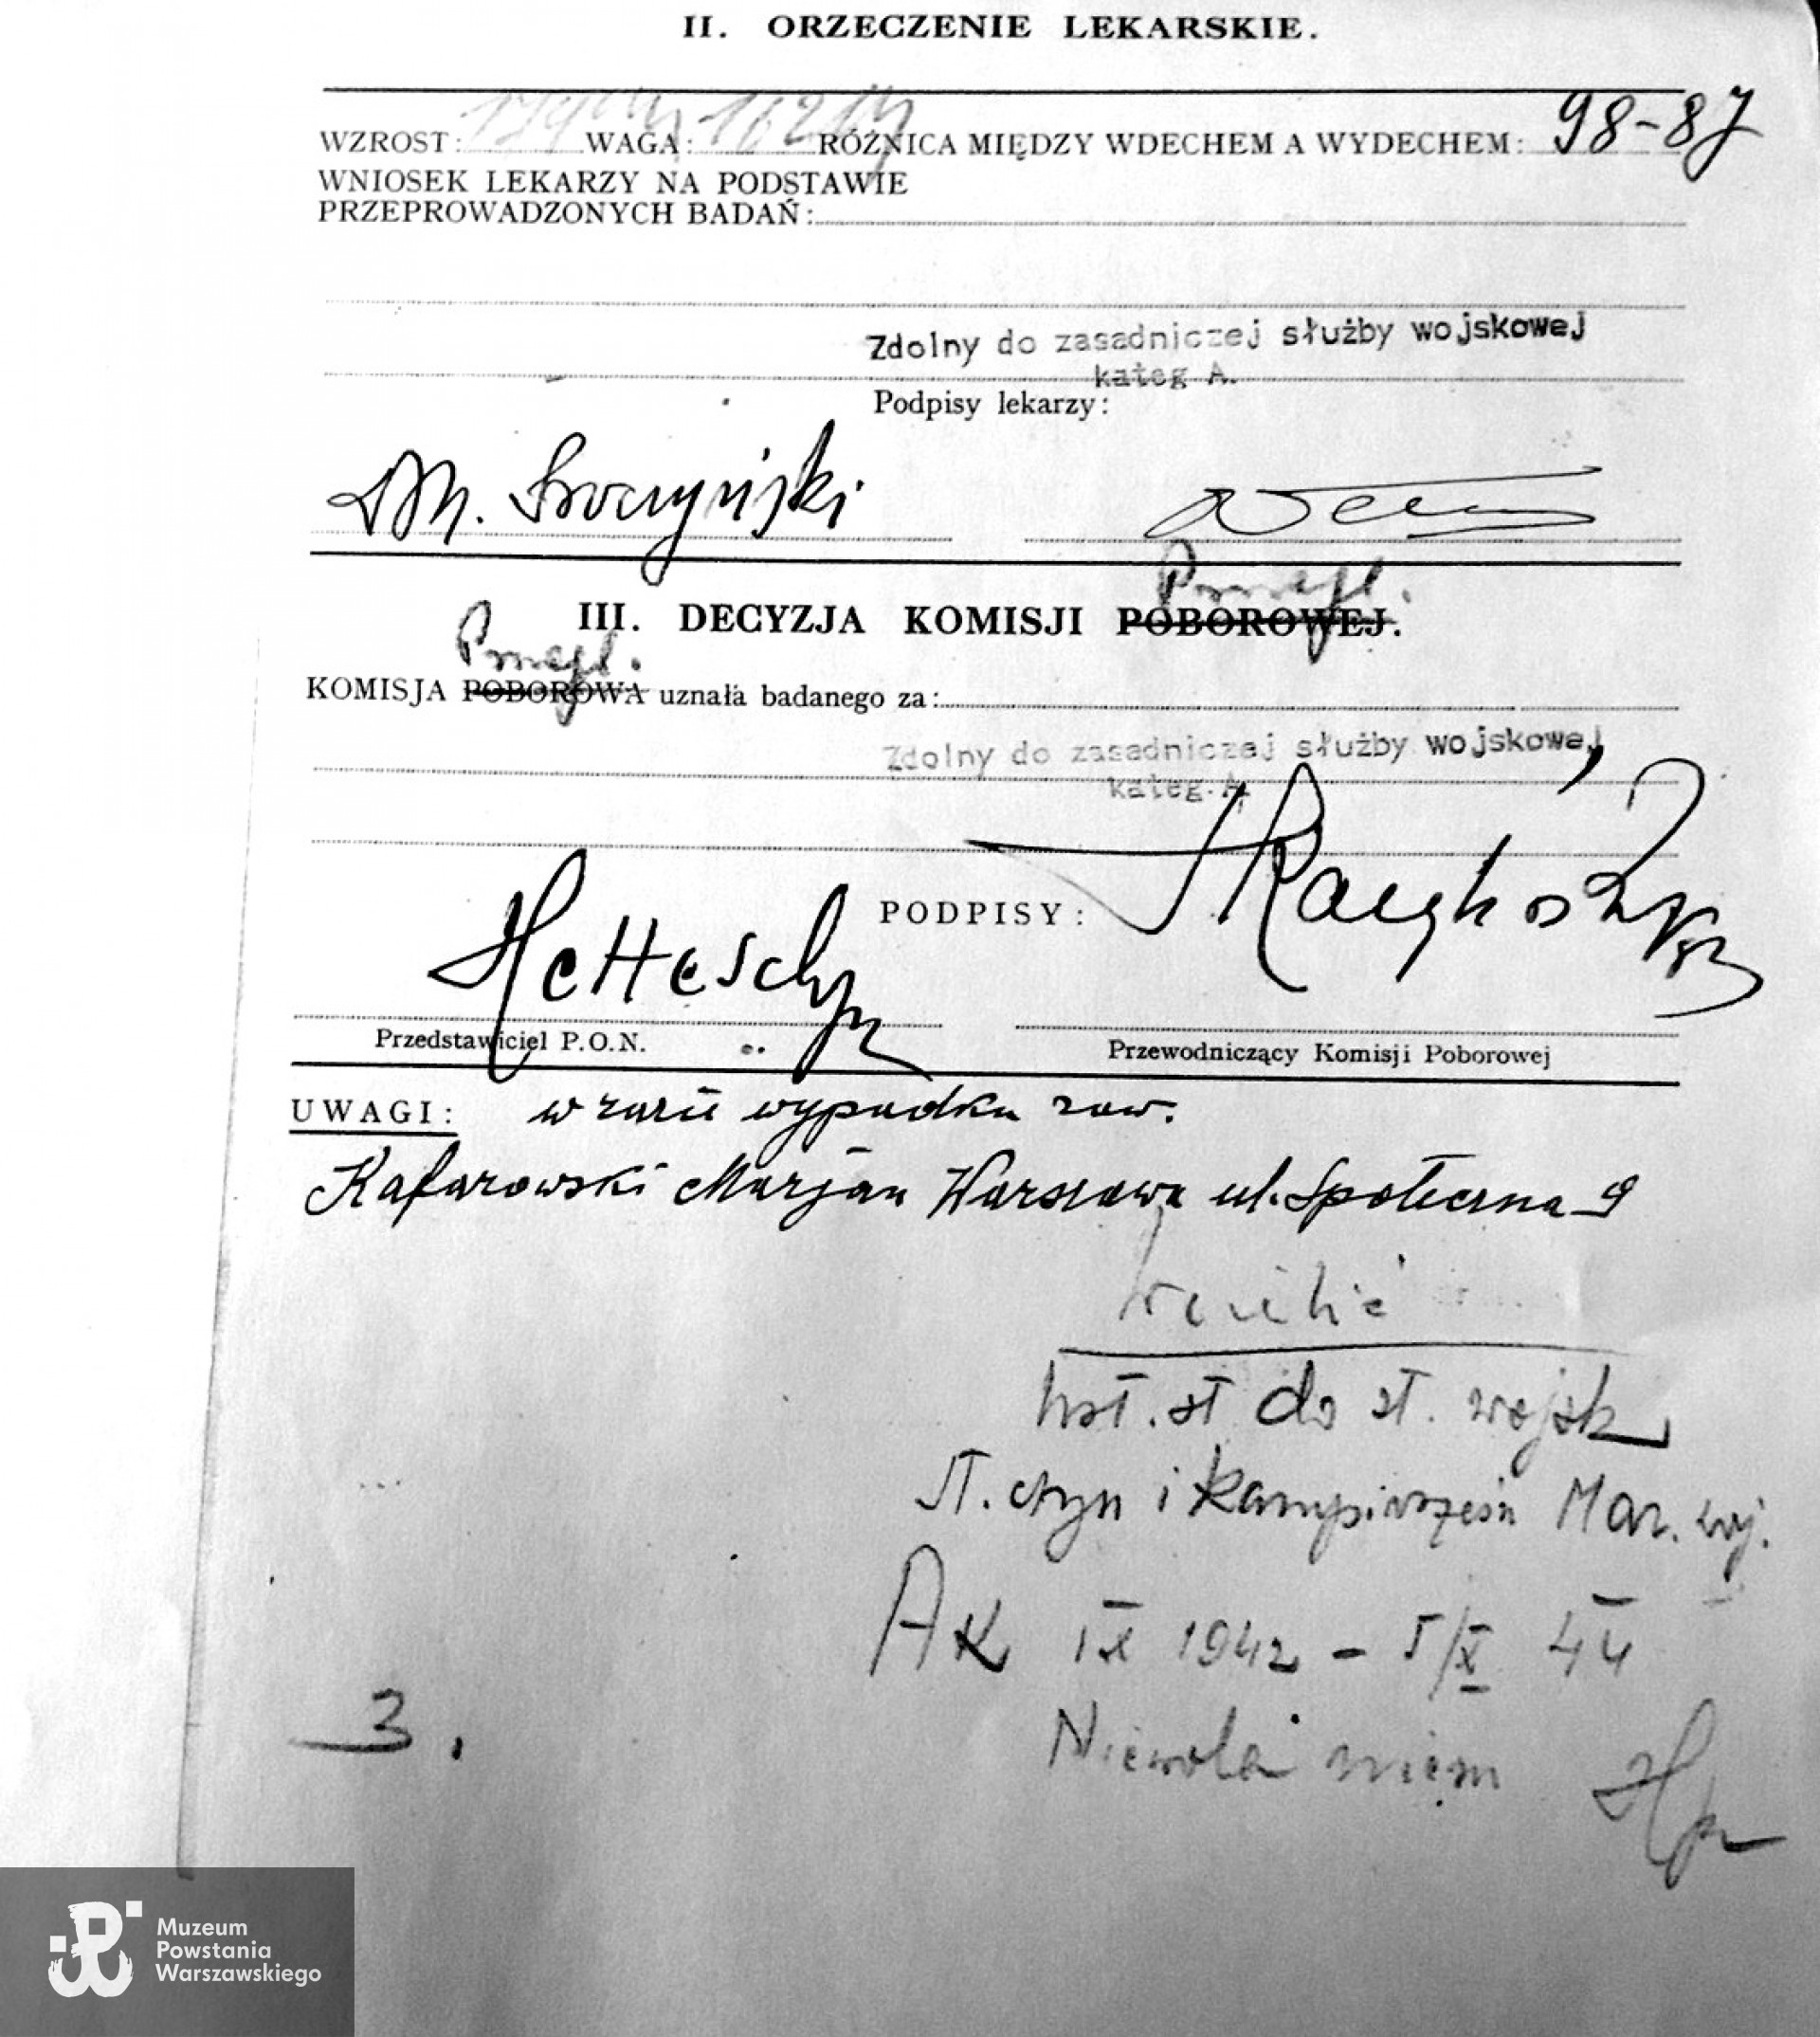 II. ORZECZENIE LEKARSKIE.
WZROST: WAGA: RÓŻNICA MIĘDZY WDECHEM A WYDECHEM: 98-87
WNIOSEK LEKARZY NA PODSTAWIE
PRZEPROWADZONYCH BADAŃ:
Zdolny do zasadniczej służby wojskowej
kateg A.
Podpisy lekarzy:
III. DECYZJA KOMISJI POBOROWEJ.
KOMISJA POBOROWA uznała badanego za:
Zdolny do zasadniczej służby wojskowej
kateg. A.
PODPISY:
Przedstawiciel P.O.N.
Przewodniczący Komisji Poborowej
UWAGI: w razie wypadku zaw.
Kafarowski Marjan Warszawa ul. Społeczna 9
st do st. wojsk
st. czyn i kamp. wrześn Mar. woj.
AK IX 1942 - 5/X 44
Niewola niem
3.
Muzeum
Powstania
Warszawskiego